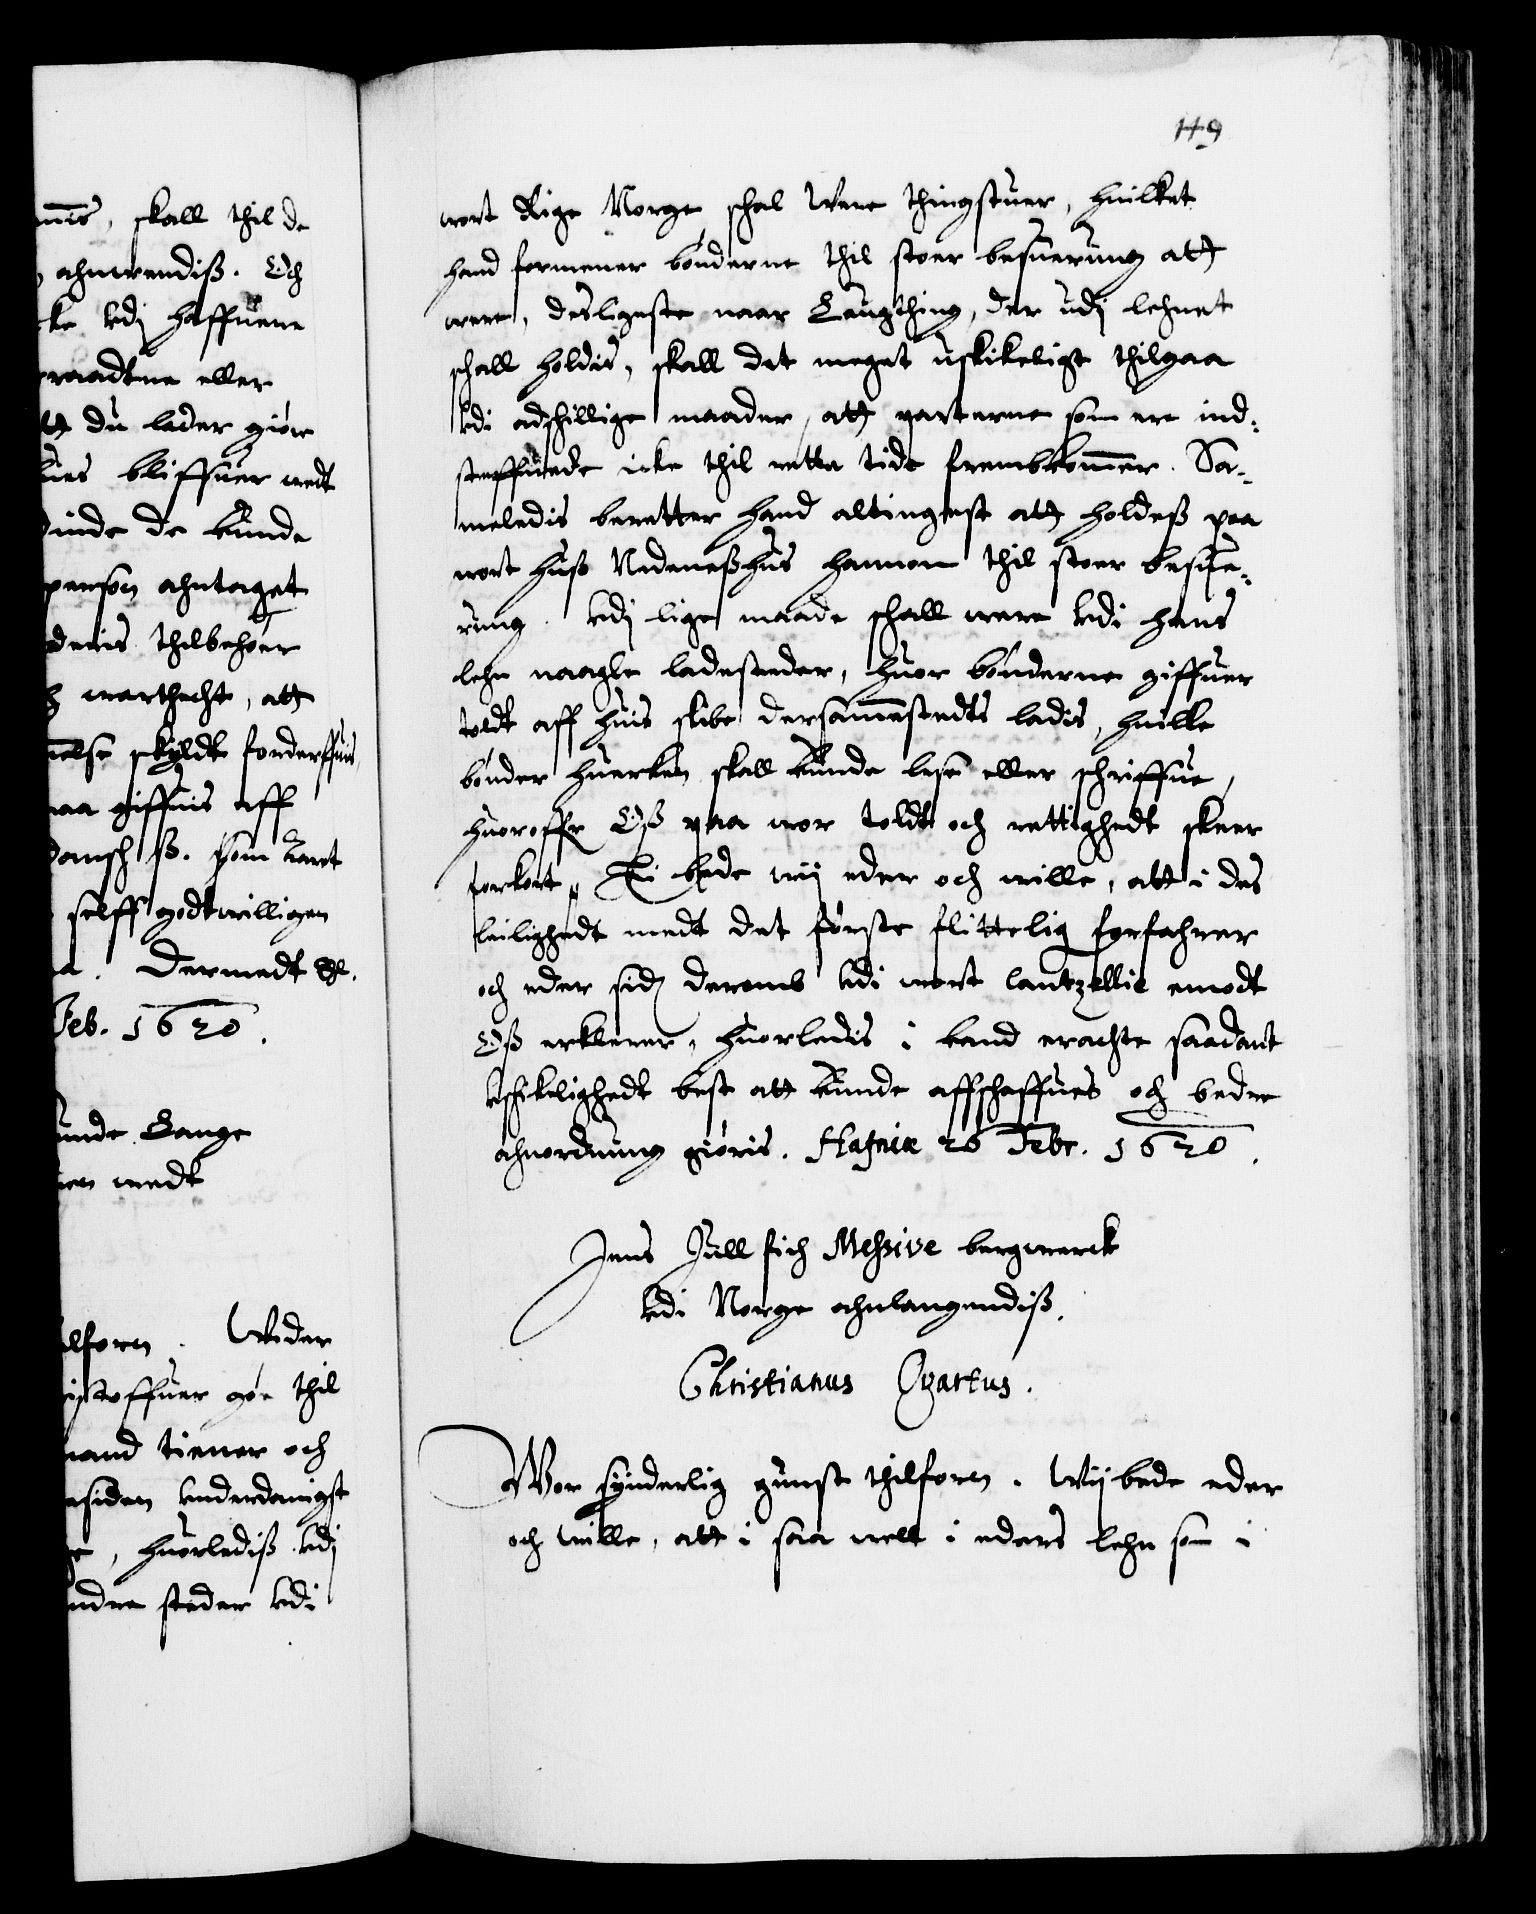 mis, skall thil de
ahnwendiß. Och
cke udj haffuene
raadtne eller
tt du lader giøre
lues bliffuer medt
inde de kunde
person ahntaget
deris thilbehør
marthecht, att
nelse skyldt forderffuis
maa giffuis aff
Dansch ß. som waret
selff godtwilligen
Dermedt etc.
Feb. 1620.
unde Lange
medt
ilforn. Wider
istoffuer gøe thil
mand tiener och
esiden underdanigst
ge, huorlediß udj
ndre steder udi
119
wort Rige Norge schal were thingstuer, huilket
hand formener bønderne thil stoer besuerung att
were, desligeste naar Laugthing, der udj lehnet
schall holdis, skall det meget uskikeligt thilgaa
udi adschillige maader, att parterne som ere ind-
steffnede icke thil rette tide frembkommer. Sa-
meledis beretter hand altingest att holdeß paa
wort huß Nedeneßhus hannom thil stoer besue-
rung. Udj lige maade schall were udi hans
lehn naagle ladesteder, huor bønderne giffuer
toldt aff huis skibe dersammestedts ladis, huilke
bønder huerken skall kunde lese eller schriffue,
huoroffr Oß paa wor toldt och rettighedt skeer
forkort, Thi bede wij eder och wille, att i des
leilighedt medt det første flittelig forfahrer
och eder sid deromb udi wort Cantzellie emodt
Oß erklerer, huorledis i kand erachte saadant
uschikelighedt best att kunde affschaffues och bedre
ahnordnung giøris. Hafniæ 26 Febr. 1620.
Jens Jull fich Messive bergwerck
udi Norge ahnlangendiß.
Christianus Qvartus.
Wor synderlig gunst thilforn. Wij bede eder
och wille, att i saa well i eders lehn som i